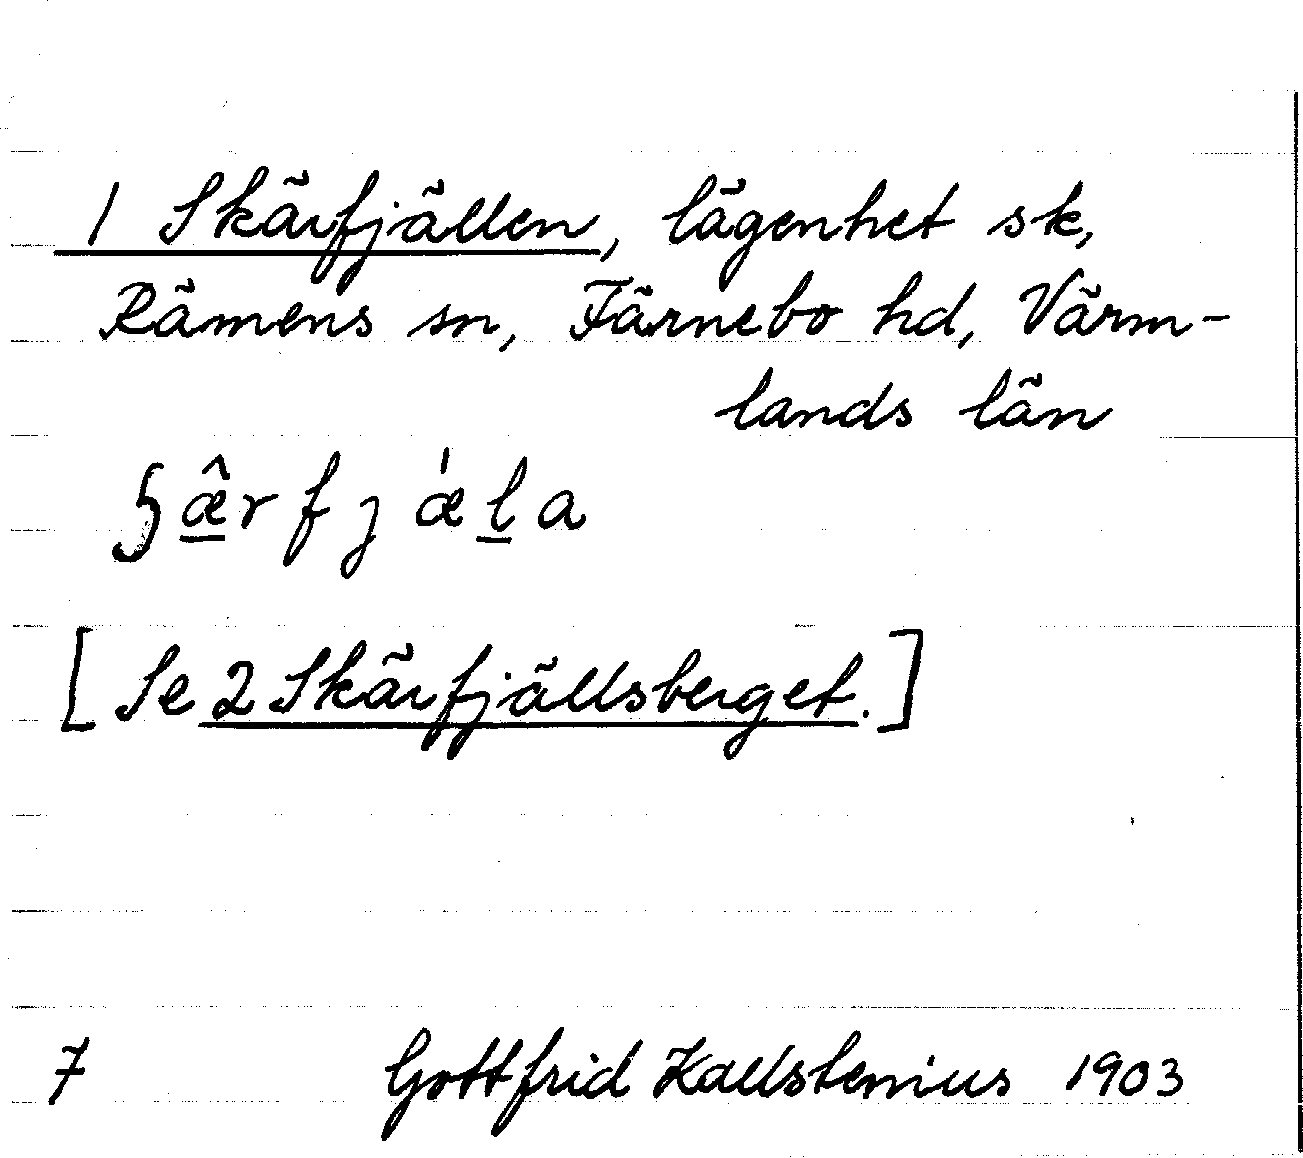 1 Skärfjällen, lägenhet sk,
Rämens sn, Färnebo hd, Värm-
lands län
ʂæ̂rfjǽla
[Se 2 Skärfjällsberget.]
7 Gottfrid Kallstenius 1903